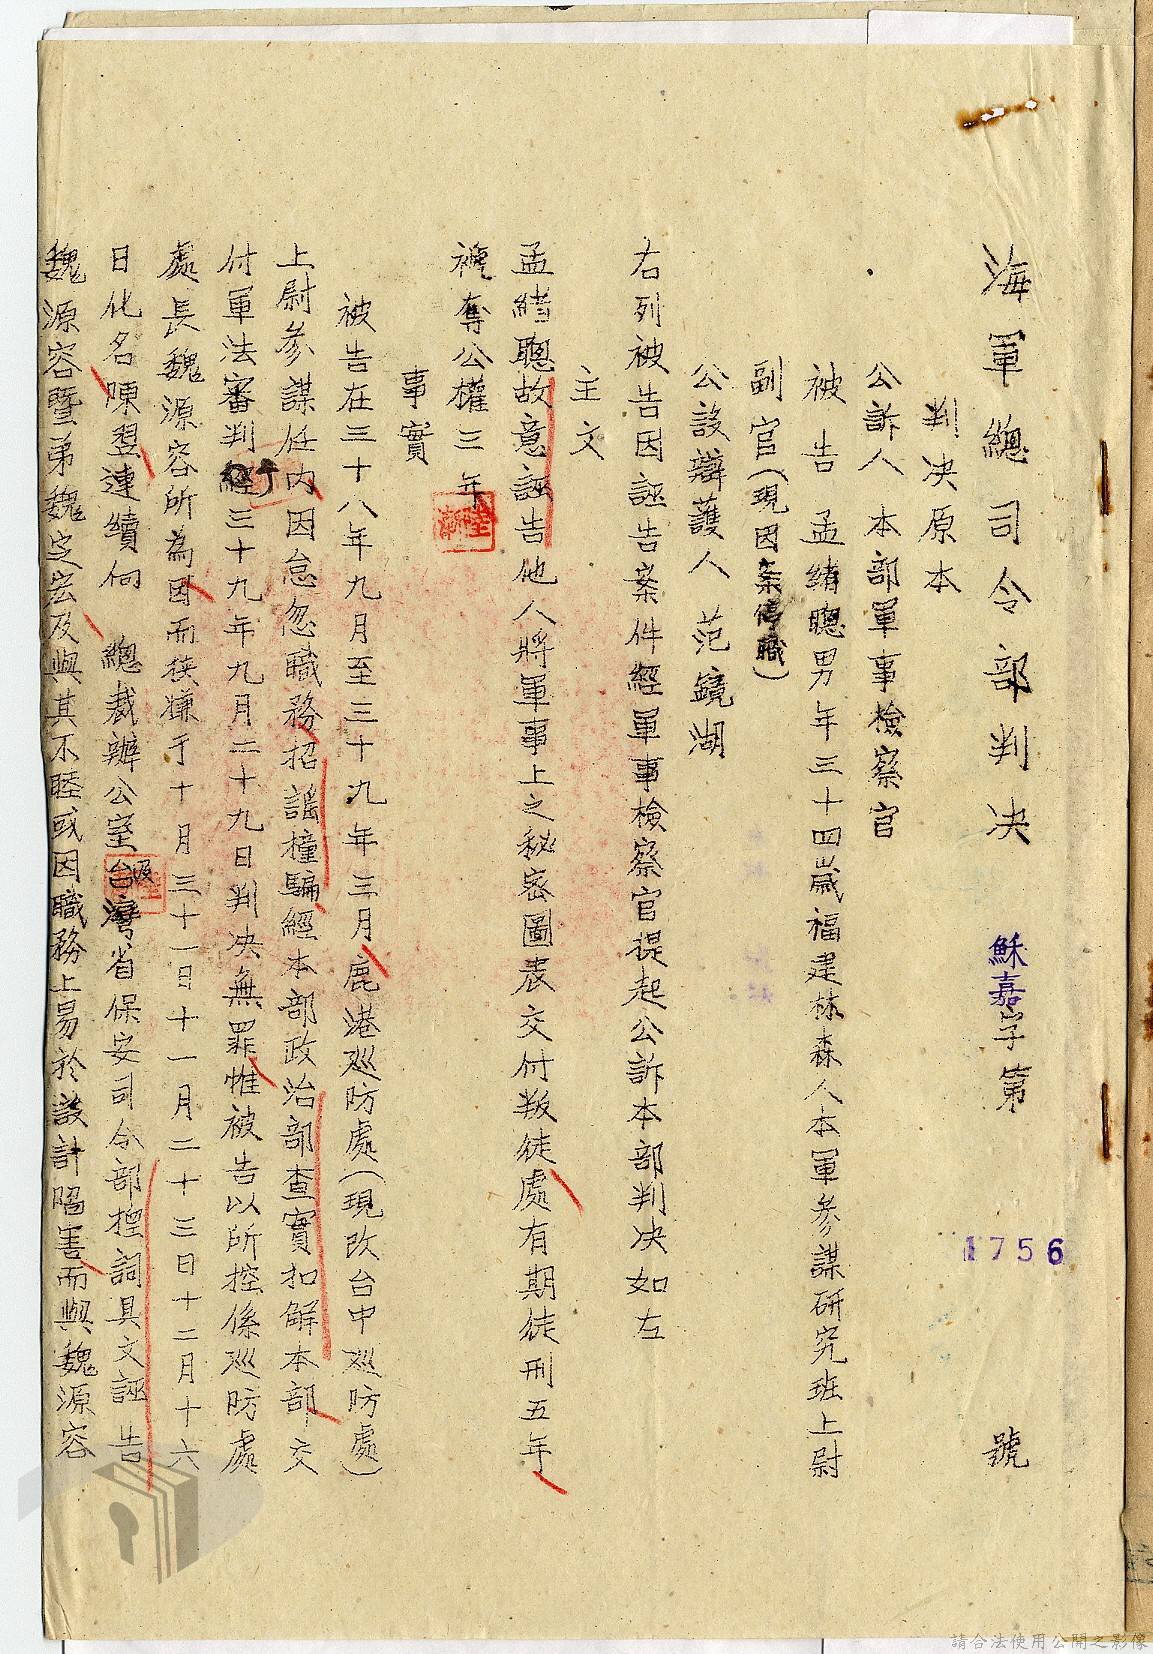 海軍總司令部判決 穌嘉字第 1756 號
判決原本
公訴人 本部軍事檢察官
被告 孟緒聰男年三十四歲福建林森人本軍參謀研究班上尉
副官(現因案停職)
公設辯護人 范鏡湖
右列被告因誣告案件經軍事檢察官提起公訴本部判決如左
主文
孟緒聰故意誣告他人將軍事上之秘密圖表交付叛徒處有期徒刑五年
褫奪公權三年
事實
被告在三十八年九月至三十九年三月鹿港巡防處(現改台中巡防處)
上尉參謀任內因怠忽職務招謠撞騙經本部政治部查實扣解本部交
付軍法審判經于三十九年九月二十九日判決無罪惟被告以所控係巡防處
處長魏源容所為因而挾嫌于十月三十一日十一月二十三日十二月十六
日化名陳翌連續向 總裁辦公室及台灣省保安司令部控詞具文誣告
魏源容暨弟魏定宏及與其不睦或因職務上易於設計陷害而與魏源容
請合法使用公開之影像